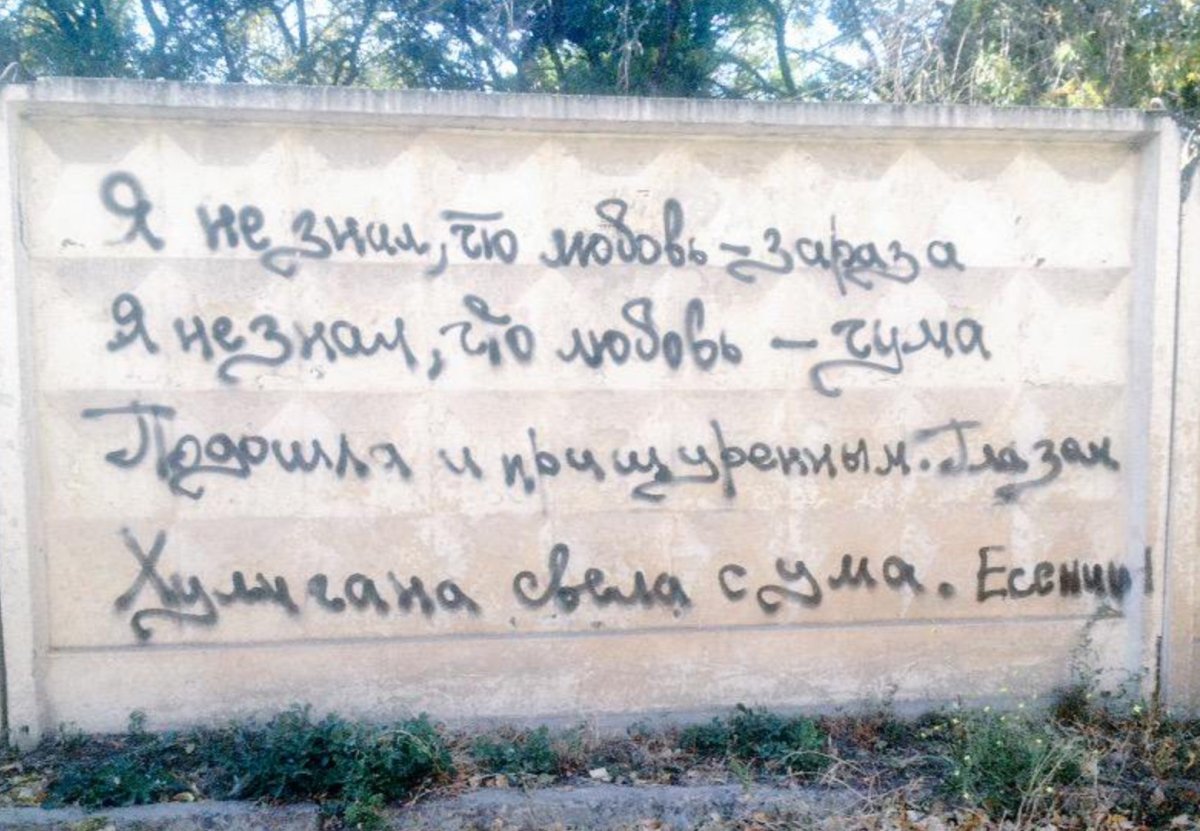 Я не знал, что любовь – зараза
Я не знал, что любовь – чума
Подошла и прищуренным. Глазом
Хулигана свела с ума. Есенин